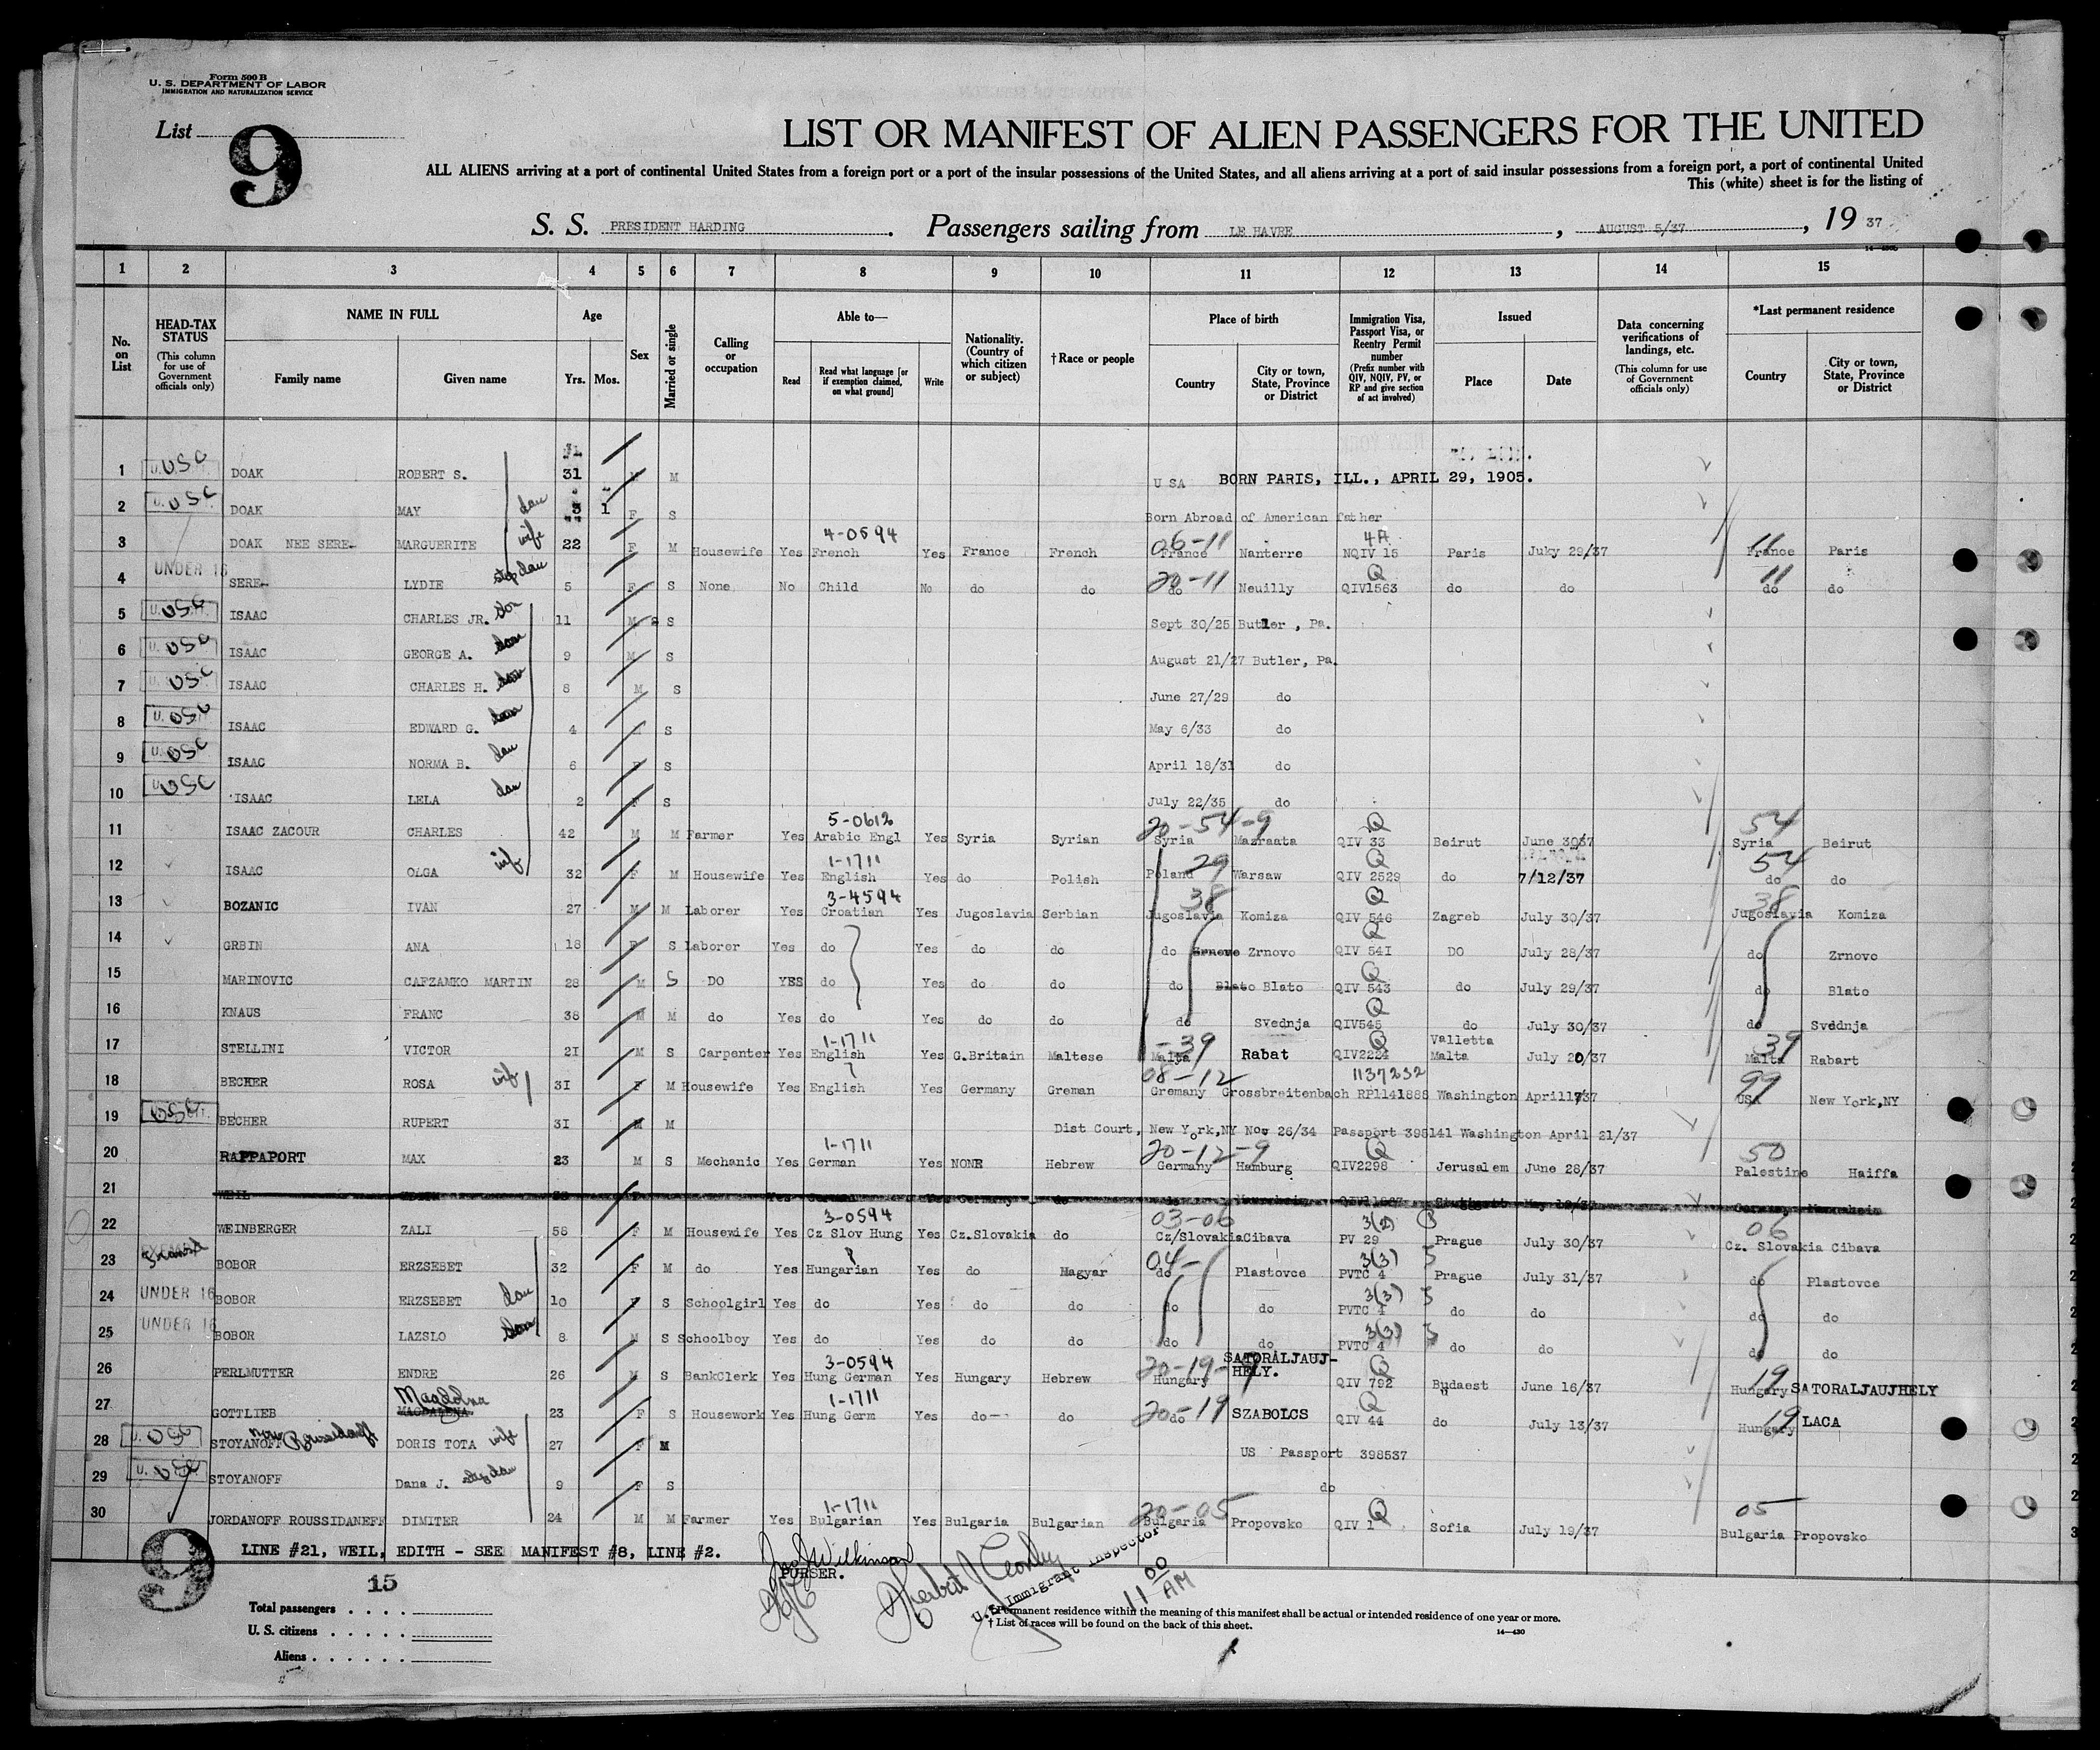 Form 500 B
U. S. DEPARTMENT OF LABOR
IMMIGRATION AND NATURALIZATION SERVICE
List 9
LIST OR MANIFEST OF ALIEN PASSENGERS FOR THE UNITED
ALL ALIENS arriving at a port of continental United States from a foreign port or a port of the insular possessions of the United States, and all aliens arriving at a port of said insular possessions from a foreign port, a port of continental United
This (white) sheet is for the listing of
S. S. PRESIDENT HARDING. Passengers sailing from LE HAVRE, AUGUST 5/37, 19 37
1 2 3 4 5 6 7 8 9 10 11 12 13 14 15
No. on List
HEAD-TAX STATUS (This column for use of Government officials only)
NAME IN FULL Family name Given name
Age Yrs. Mos.
Sex
Married or single
Calling or occupation
Able to— Read Read what language [or if exemption claimed, on what ground] Write
Nationality. (Country of which citizen or subject)
†Race or people
Place of birth Country City or town, State, Province or District
Immigration Visa, Passport Visa, or Reentry Permit number (Prefix number with QIV, NQIV, PV, or RP and give section of act involved)
Issued Place Date
Data concerning verifications of landings, etc. (This column for use of Government officials only)
*Last permanent residence Country City or town, State, Province or District
1 USC DOAK ROBERT S. 31 M M USA BORN PARIS, ILL., APRIL 29, 1905.
2 USC DOAK MAY dau 3 1 F S Born Abroad of American father
4-0594 06-11 4A 11
3 DOAK NEE SERE- MARGUERITE wife 22 F M Housewife Yes French Yes France French France Nanterre NQIV 15 Paris Juky 29/37 France Paris
UNDER 16 20-11 Q 11
4 SERE- LYDIE step dau 5 F S None No Child No do do do Neuilly QIV1563 do do do do
5 USC ISAAC CHARLES JR. son 11 M S Sept 30/25 Butler , Pa.
6 USC ISAAC GEORGE A. son 9 M S August 21/27 Butler, Pa.
7 USC ISAAC CHARLES H. son 8 M S June 27/29 do
8 USC ISAAC EDWARD G. son 4 S May 6/33 do
9 USC ISAAC NORMA B. dau 6 F S April 18/31 do
10 USC ISAAC LELA dau 2 F S July 22/35 do
5-0612 20-54-9 Q 54
11 ISAAC ZACOUR CHARLES 42 M M Farmer Yes Arabic Engl Yes Syria Syrian Syria Mazraata QIV 33 Beirut June 3037 Syria Beirut
1-1711 29 Q 54
12 ISAAC OLGA wife 32 F M Housewife Yes English Yes do Polish Poland Warsaw QIV 2529 do 7/12/37 do do
3-4594 38 Q 38
13 BOZANIC IVAN 27 M M Laborer Yes Croatian Yes Jugoslavia Serbian Jugoslavia Komiza QIV 546 Zagreb July 30/37 Jugoslavia Komiza
Q
14 GRBIN ANA 18 F S Laborer Yes do Yes do do do Zrnovo QIV 541 DO July 28/37 do Zrnovo
Q
15 MARINOVIC CAFZAMKO MARTIN 28 M S DO YES do Yes do do do Blato Blato QIV 543 do July 29/37 do Blato
Q
16 KNAUS FRANC 38 M M do Yes do Yes do do do Svednja QIV545 do July 30/37 do Svednja
1-1711 -39 Q Valletta 39
17 STELLINI VICTOR 21 M S Carpenter Yes English Yes G.Britain Maltese Malta Rabat QIV2224 Malta July 20/37 Malta Rabart
08-12 1137232 99
18 BECHER ROSA wife 31 F M Housewife Yes English Yes Germany Greman Gremany Grossbreitenbach RP1141888 Washington April17/37 USA New York,NY
19 USC BECHER RUPERT 31 M M Dist Court, New York,NY Nov 26/34 Passport 398141 Washington April 21/37
1-1711 20-12-9 Q 50
20 RAPPAPORT MAX 23 M S Mechanic Yes German Yes NONE Hebrew Germany Hamburg QIV2298 Jerusalem June 28/37 Palestine Haiffa
21 WEIL
3-0594 03-06 3(2) 06
22 WEINBERGER ZALI 58 F M Housewife Yes Cz Slov Hung Yes Cz.Slovakia do Cz/Slovakia Cibava PV 29 Prague July 30/37 Cz. Slovakia Cibava
04- 3(3)
23 BOBOR ERZSEBET 32 F M do Yes Hungarian Yes do Magyar do Plastovce PVTC 4 Prague July 31/37 do Plastovce
UNDER 16 3(3)
24 BOBOR ERZSEBET dau 10 F S Schoolgirl Yes do Yes do do do do PVTC 4 do do do do
UNDER 16 3(3)
25 BOBOR LAZSLO son 8 M S Schoolboy Yes do Yes do do do do PVTC 4 do do do do
3-0594 20-19-9 SATORALJAUJ- Q 19
26 PERLMUTTER ENDRE 26 M S BankClerk Yes Hung German Yes Hungary Hebrew Hungary HELY. QIV 792 Budaest June 16/37 Hungary SATORALJAUJHELY
Magdolna 1-1711 20-19 Q 19
27 GOTTLIEB MAGDALENA 23 F S Housework Yes Hung Germ Yes do do do SZABOLCS QIV 44 do July 13/37 Hungary LACA
28 STOYANOFF now DORIS TOTA wife 27 F M US Passport 398537
29 STOYANOFF Dana J. step dau 9 F S do
1-1711 20-05 Q 05
30 JORDANOFF ROUSSIDANEFF DIMITER 24 M M Farmer Yes Bulgarian Yes Bulgaria Bulgarian Bulgaria Propovsko QIV 1 Sofia July 19/37 Bulgaria Propovsko
LINE #21, WEIL, EDITH - SEE MANIFEST #8, LINE #2.
9
15
PURSER.
U.S. Immigrant Inspector
11 00 AM
Total passengers . . . .
U. S. citizens . . . . .
Aliens . . . . . .
*Permanent residence within the meaning of this manifest shall be actual or intended residence of one year or more.
† List of races will be found on the back of this sheet.
14—430